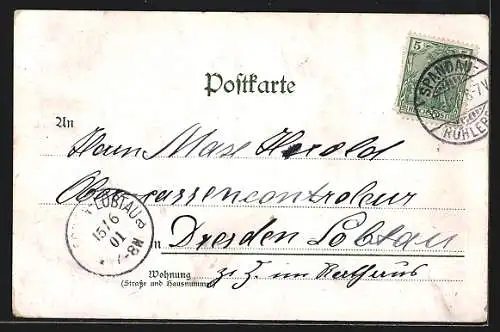 5 5
SPANDAU-
7V
RUHLEB
Postkarte
An
Herrn Max Herold
Obercassencontroleur
LÖBTAU a
15/6
01
7-8N
in Dresden Löbtau
Wohnung
(Straße und Hausnummer)
z. Z. im Rathaus